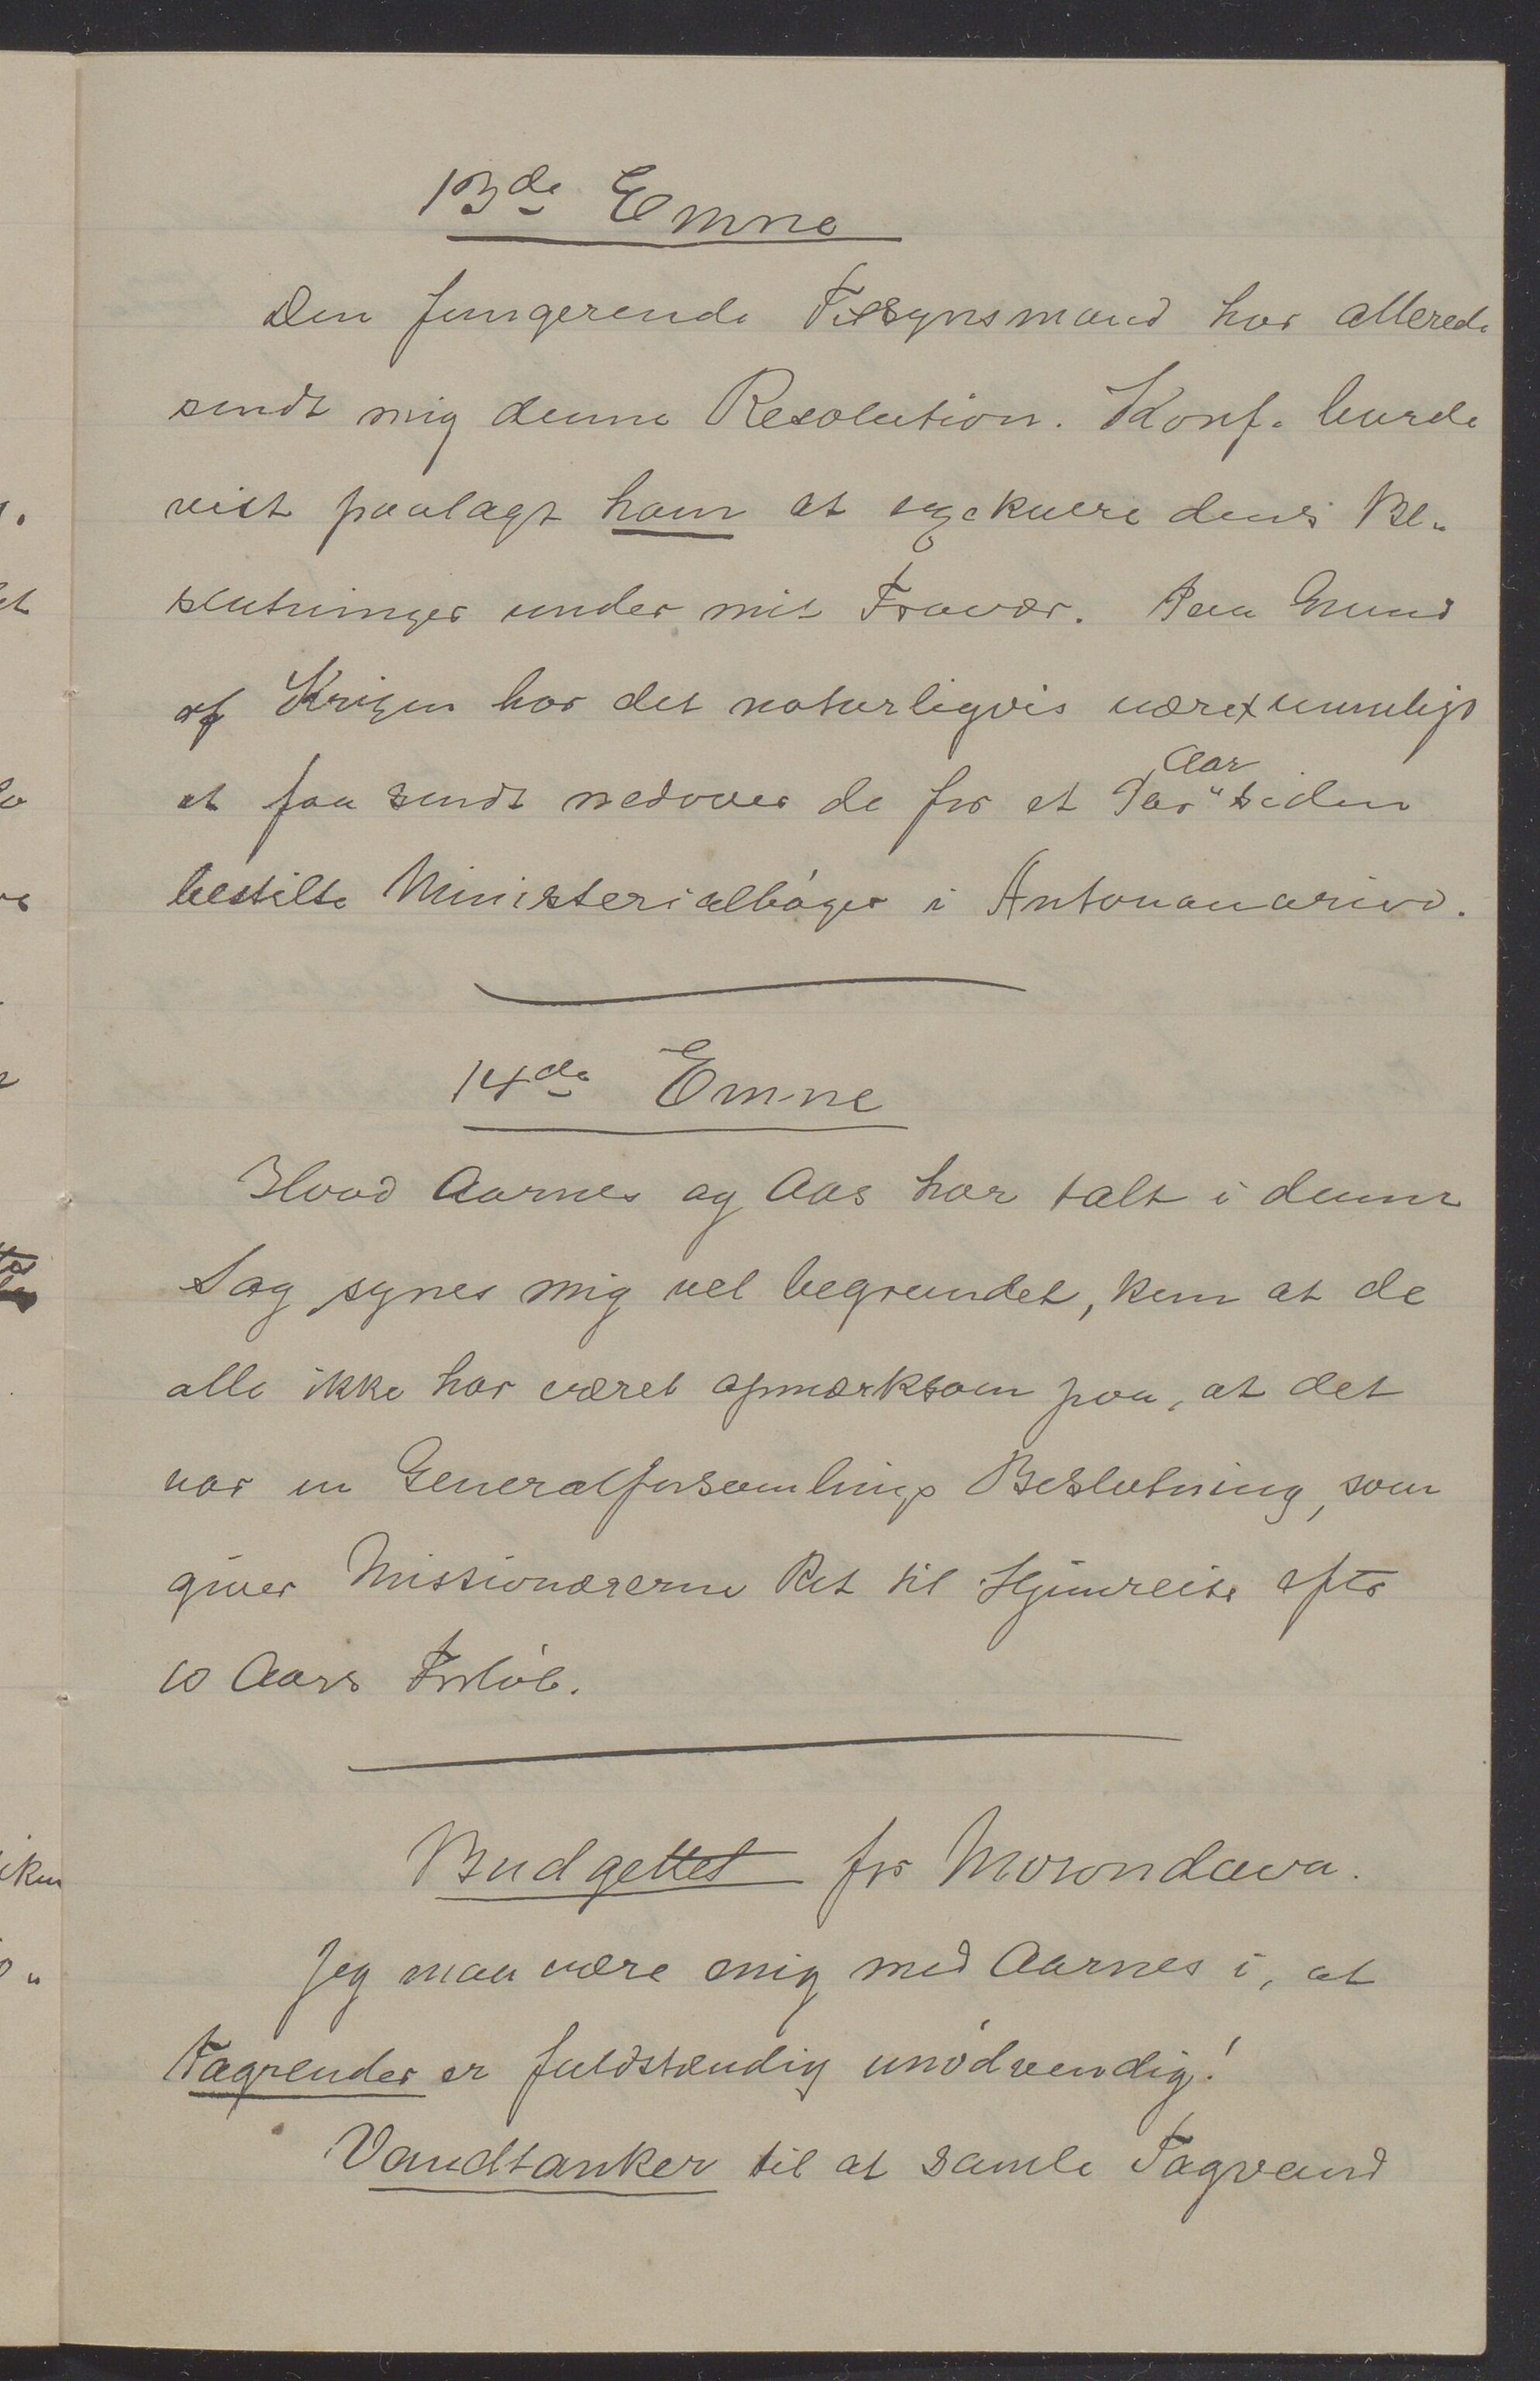 13de Emne
Den fungerende Tilsynsmand har allerede
sendt mig denne Resolution. Konf. burde
vist paalagt ham at exekvere dens Be-
slutninger under mit Fravær. Paa Grund
af Krigen har det naturligvis været umuligt
at faa sendt nedover de for et Par Aar siden
bestilte Ministerialbøger i Antananarivo.
14de Emne
Hvad Aarnes og Aas har talt i denne
Sag synes mig vel begrundet, kun at de
alle ikke har været opmærksom paa, at det
var en Generalforsamlings Beslutning, som
giver Missionærerne Ret til Hjemreise efter
10 Aars Forløb.
Budgettet for Morondava.
Jeg maa være enig med Aarnes i, at
Tagrender er fuldstændig unødvendig!
Vandtanker til at samle Tagvand